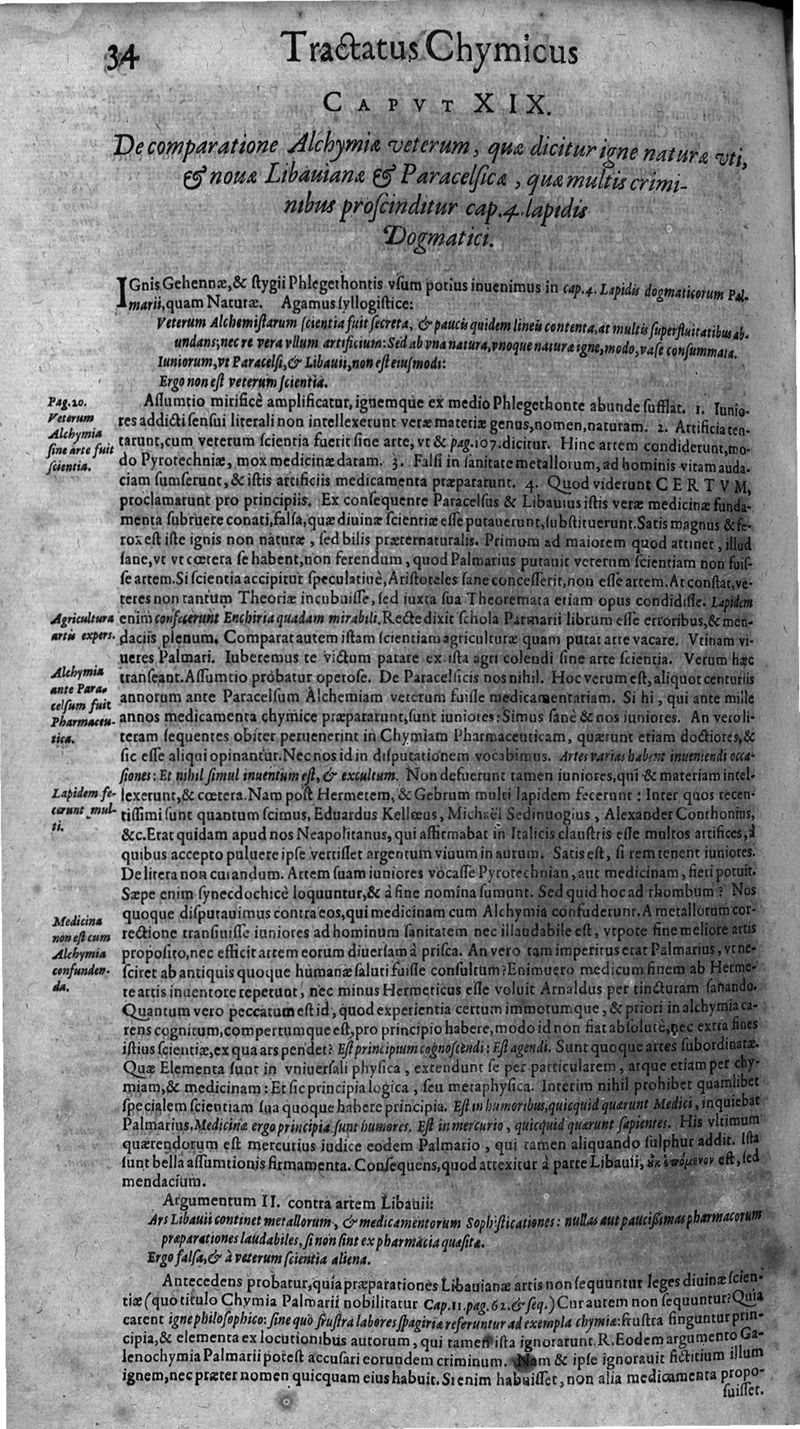 34
Tractatus Chymicus
CAPVT XIX.
De comparatione Alchymiæ veterum, quæ dicitur igne naturæ vti,
& noua Libauiana & Paracelsica, quæ multis crimi-
nibus proscinditur cap. 4. lapidis
Dogmatici.
IGnis Gehennæ, & stygii Phlegethontis vsum potius inuenimus in cap. 4. Lapidis dogmaticorum Pal-
marii, quam Naturæ. Agamus syllogistice:
Veterum Alchemistarum scientia fuit secreta, & paucis quidem lineis contenta, at multis superfluitatibus ab-
undans; nec re vera vllum artificium: Sed ab vna natura, vnoque naturæ igne, modo, vase consummata.
Iuniorum, vt Paracelsi, & Libauii, non est eiusmodi:
Ergo non est veterum scientia.
Pag. 20.
Veterum
Alchymia
sine arte fuit
scientia.
Assumtio mirificè amplificatur, ignemque ex medio Phlegethonte abunde sufflat. 1. Iunio-
res addicti sensui literali non intellexerunt veræ materiæ genus, nomen, naturam. 2. Artificia ten-
tarunt, cum veterum scientia fuerit sine arte, vt & pag. 107. dicitur. Hinc artem condiderunt, mo-
do Pyrotechniæ, mox medicinæ datam. 3. Falsi in sanitate metallorum, ad hominis vitam auda-
ciam sumserunt, & istis artificiis medicamenta præparunt. 4. Quod viderunt CERTVM,
proclamarunt pro principiis. Ex consequente Paracelsus & Libauius istis veræ medicinæ funda-
menta subruere conati, falsa, quæ diuinæ scientiæ esse putauerunt, substituerunt. Satis magnus & fe-
rox est iste ignis non naturæ, sed bilis præternaturalis. Primum ad maiorem quod attinet, illud
sane, vt vt cœtera se habent, non ferendum, quod Palmarius putauit veterum scientiam non fuis-
se artem. Si scientia accipitur speculatiuè, Aristoteles sane concesserit, non esse artem. At constat, ve-
teres non tantum Theoriæ incubuisse, sed iuxta sua Theoremata etiam opus condidisse. Lapidem
Agricultura
artis expers.
enim confecerunt Enchiria quadam mirabili. Recte dixit schola Parmarii librum esse erroribus, & men-
daciis plenum. Comparat autem istam scientiam agriculturæ quam putat arte vacare. Vtinam vi-
ueres Palmari. Iuberemus te victum parare ex ista agri colendi sine arte scientia. Verum hæc
Alchymia
ante Para-
celsum fuit
Pharmaceu-
tica.
transeant. Assumtio probatur operose. De Paracelsicis nos nihil. Hoc verum est, aliquot centuriis
annorum ante Paracelsum Alchemiam veterum fuisse medicamentariam. Si hi, qui ante mille
annos medicamenta chymice præpararunt, sunt iuniores: Simus sanè & nos iuniores. An vero li-
teram sequentes obiter peruenerint in Chymiam Pharmaceuticam, quærunt etiam doctiores, &
sic esse aliqui opinantur. Nec nos id in disputationem vocabimus. Artes varias habent inueniendi occa-
siones: Et nihil simul inuentum est, & excultum. Non defuerunt tamen iuniores, qui & materiam intel-
Lapidem fe-
cerunt mul-
ti.
lexerunt, & cœtera. Nam post Hermetem, & Gebrum multi lapidem fecerunt: Inter quos recen-
tissimi sunt quantum scimus, Eduardus Kellæus, Michaël Sedinuogius, Alexander Conthonius,
&c. Erat quidam apud nos Neapolitanus, qui affirmabat in Italicis claustris esse multos artifices, à
quibus accepto puluere ipse vertisset argentum viuum in aurum. Satis est, si rem tenent iuniores.
De litera non curandum. Artem suam iuniores vocasse Pyrotechnian, aut medicinam, fieri potuit.
Sæpe enim synecdochicè loquuntur, & à fine nomina sumunt. Sed quid hoc ad rhombum? Nos
Medicina
non est cum
Alchymia
confunden-
da.
quoque disputauimus contra eos, qui medicinam cum Alchymia confuderunt. A metallorum cor-
rectione transiuisse iuniores ad hominum sanitatem nec illaudabile est, vtpote fine meliore artis
proposito, nec efficit artem eorum diuersam à prisca. An vero tam imperitus erat Palmarius, vt ne-
sciret ab antiquis quoque humanæ saluti fuisse consultum? Enimuero medicum finem ab Herme-
te artis inuentore repetunt, nec minus Hermeticus esse voluit Arnaldus per tincturam sanando.
Quantum vero peccatum est id, quod experientia certum immotumque, & priori in alchymia ca-
rens cognitum, compertumque est, pro principio habere, modo id non fiat absolutè, nec extra fines
istius scientiæ, ex qua ars pendet? Est principium cognoscendi: Est agendi. Sunt quoque artes subordinatæ.
Quæ Elementa sunt in vniuersali physica, extendunt se per particularem, atque etiam per chy-
miam, & medicinam: Et sic principia logica, seu metaphysica. Interim nihil prohibet quamlibet
specialem scientiam sua quoque habere principia. Est in humoribus, quicquid quærunt Medici, inquiebat
Palmarius. Medicinæ ergo principia sunt humores. Est in mercurio, quicquid quærunt sapientes. His vltimum
quærendorum est mercurius iudice eodem Palmario, qui tamen aliquando sulphur addit. Ista
sunt bella assumtionis firmamenta. Consequens, quod attexitur à parte Libauii, ἑπόμενον est, sed
mendacium.
Argumentum II. contra artem Libauii:
Ars Libauii continet metallorum, & medicamentorum Sophisticationes: nullas aut paucißimas pharmacorum
præparationes laudabiles, si non sint ex pharmacia quæsita.
Ergo falsa, & à veterum scientia aliena.
Antecedens probatur, quia præparationes Libauianæ artis non sequuntur leges diuinæ scien-
tiæ (quo titulo Chymia Palmarii nobilitatur Cap. 11. pag. 62. & seq.) Cur autem non sequuntur? Quia
carent igne philosophico: sine quo frustra labores spagiria referuntur ad exempla chymiæ: frustra finguntur prin-
cipia, & elementa ex locutionibus autorum, qui tamen ista ignorarunt. R. Eodem argumento Ga-
lenochymia Palmarii potest accusari eorundem criminum. Nam & ipse ignorauit fictitium illum
ignem, nec præter nomen quicquam eius habuit. Si enim habuisset, non alia medicamenta propo-
suisset.